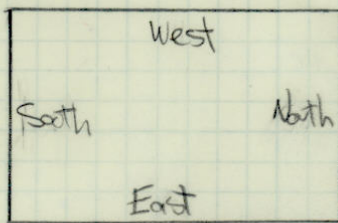 West
South
North
East